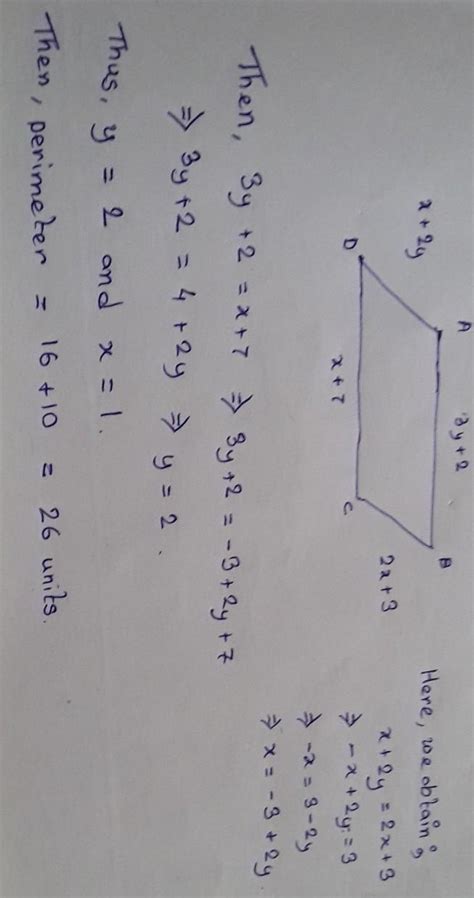 A
3y+2
B
x+2y
2x+3
D
x+7
C
Here, we obtain:
x+2y = 2x+3
⇒ -x+2y=3
⇒ -x = 3-2y
⇒ x = -3+2y
Then, 3y+2 = x+7 ⇒ 3y+2 = -3+2y+7
⇒ 3y+2 = 4+2y ⇒ y = 2.
Thus, y = 2 and x = 1.
Then, perimeter = 16+10 = 26 units.